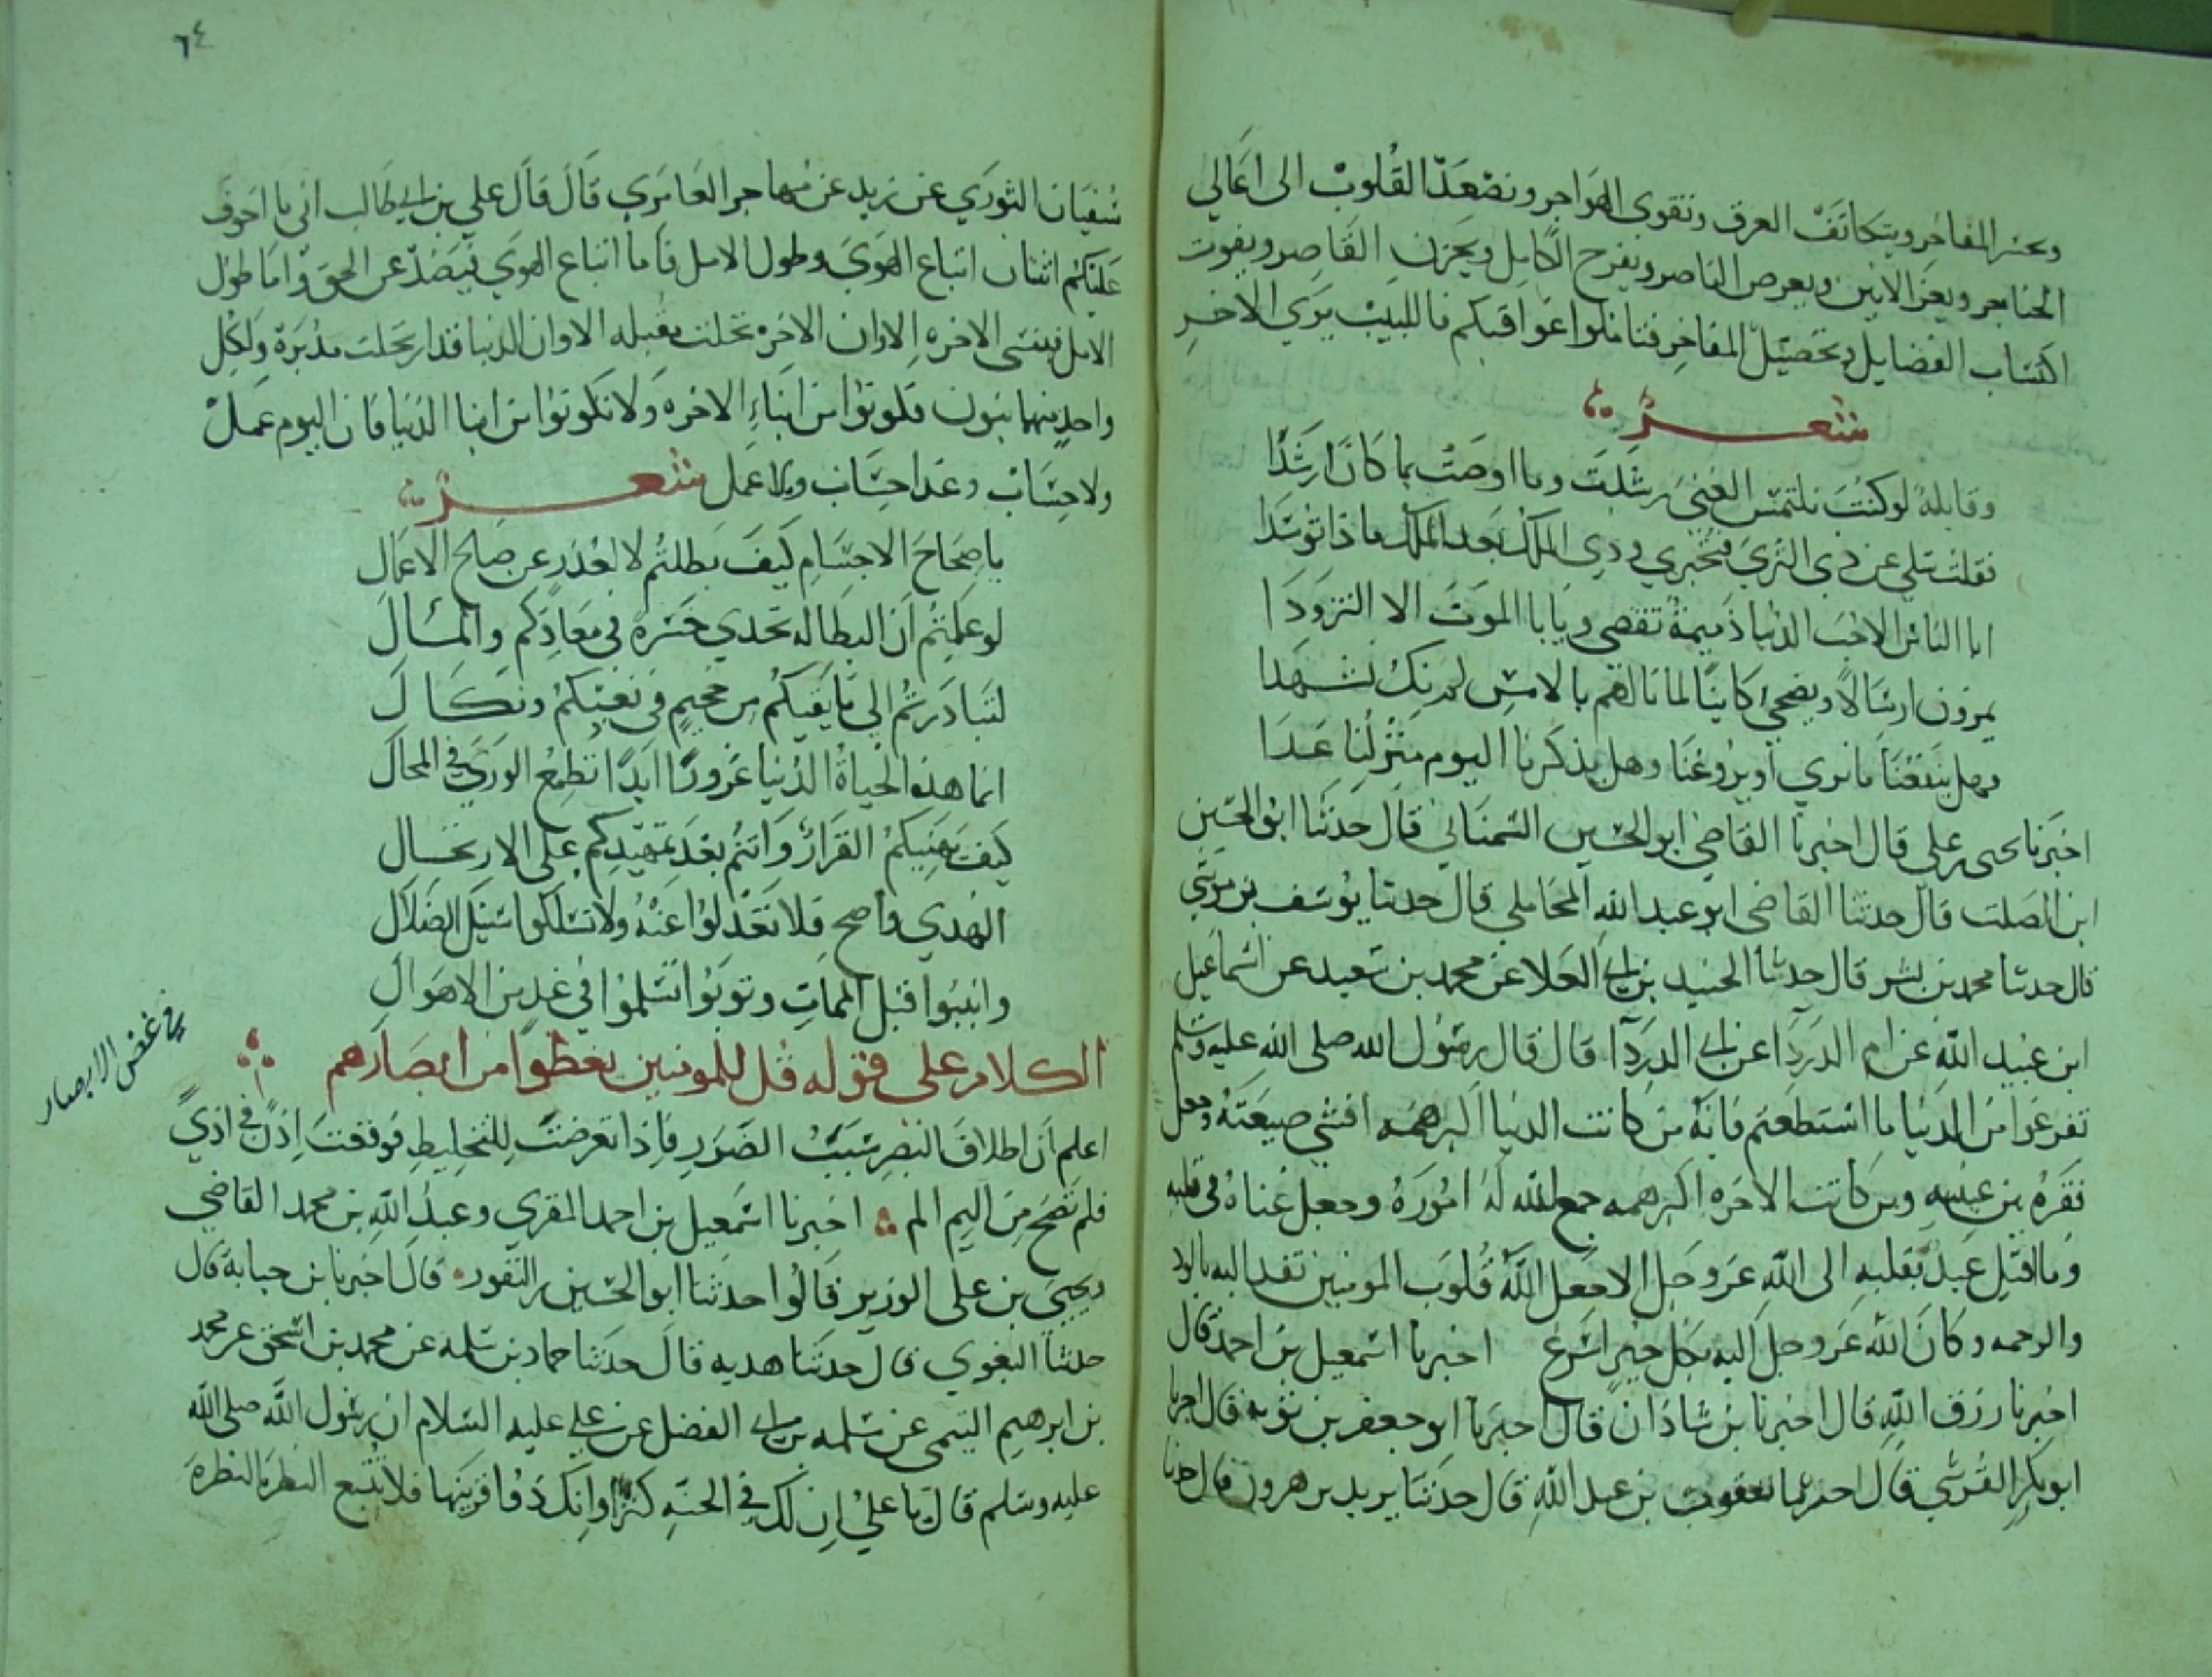 وبحسر المفاخر ويتكاثف العرق وتقوى الهواجر وتصعد القلوب الى اعالي
الحناجر ويعز الانين ويعرض الناصر ويفرح الكامل ويحزن القاصر ويفوت
اكتساب الفضايل وتحصيل المفاخر فتاملوا عواقبكم فاللبيب يرى الاخر
شعر
وقايلة لو كنت تلتمس الغنى رشدت وما اوصت بما كان ارشدا
فقلت سلي عن ذي الثرى فتخبري وذي الملك بعد الملك ماذا توسدا
ابا الناس الا حب الدنيا ذميمة تقضى ويابا الموت الا التزودا
يمرون ارسالا ويضحي كاينا لما نالهم بالامس لم نك نشهدا
وهل ينفعنا ما نرى او يروعنا وهل يذكرنا اليوم منزلنا غدا
اخبرنا يحيى بن علي قال اخبرنا القاضي ابو الحسين السمناني قال حدثنا ابو الحسين
ابن الصلت قال حدثنا القاضي ابو عبد الله المحاملي قال حدثنا يوسف بن موسى
قال حدثنا محمد بن بشر قال حدثنا الجنيد بن ابي العلا عن محمد بن سعيد عن اسماعيل
ابن عبيد الله عن ام الدردا عن ابي الدردا قال قال رسول الله صلى الله عليه وسلم
تفرغوا من الدنيا ما استطعتم فانه من كانت الدنيا اكبر همه افشى ضيعته وجعل
فقره بين عينيه ومن كانت الاخره اكبر همه جمع الله له اموره وجعل غناه في قلبه
وما اقبل عبد بقلبه الى الله عز وجل الا جعل الله قلوب المومنين تفد اليه بالود
والرحمه وكان الله عز وجل اليه بكل خير اسرع اخبرنا اسمعيل بن احمد قال
اخبرنا رزق الله قال اخبرنا بن شاذان قال اخبرنا ابو جعفر بن توبه قال اخبرنا
ابو بكر القرشي قال اخبرنا يعقوب بن عبد الله قال حدثنا يزيد بن هرون قال حدثنا
٦٤
سفيان الثوري عن زيد عن مهاجر العامري قال قال علي بن ابي طالب ان ما اخوف
عليكم اثنان اتباع الهوى وطول الامل فاما اتباع الهوى فيصد عن الحق واما طول
الامل فينسى الاخره الا وان الاخره تحلت مقبله الا وان الدنيا قد ارتحلت مدبرة ولكل
واحد منهما بنون فكونوا من ابناء الاخره ولا تكونوا من ابنا الدنيا فان اليوم عمل
ولا حساب وغدا حساب ولا عمل شعر
يا صحاح الاجسام كيف بطلتم لا لعذر عن صالح الاعمال
لو علمتم ان البطاله تجدي حسرة في معادكم والمسال
لتبادرتم الى ما يقيكم من جحيم في بعثكم ونكال
انما هذه الحياة الدنيا غرور ابدا تطمع الورى في المحال
كيف يهنيكم القرار وانتم بعد تمهيدكم على الارتحال
الهدي واضح فلا تعدلوا عنه ولا تسلكوا سبيل الضلال
وانيبوا قبل الممات وتوبوا تسلموا في غد من الاهوال
الكلام على قوله قل للمومنين يغظوا من ابصارهم
في غض الابصار
اعلم ان اطلاق البصر سبب الضرر فاذا تعرضت للتخليط فوقعت اذن في اذى
فلم تضح من اليم الم اخبرنا اسمعيل بن احمد المقري وعبد الله بن محمد القاضي
ويحيى بن علي الوزير قالوا حدثنا ابو الحسين بن النقور قال اخبرنا بن حبابة قال
حدثنا البغوي قال حدثنا هدبه قال حدثنا حماد بن سلمه عن محمد بن اسحق عن محمد
بن ابرهيم التيمي عن سلمه بن ابي الفضل عن علي عليه السلام ان رسول الله صلى الله
عليه وسلم قال يا علي ان لك في الجنه كنزا وانك ذو قرنيها فلا تتبع النظرة النظرة